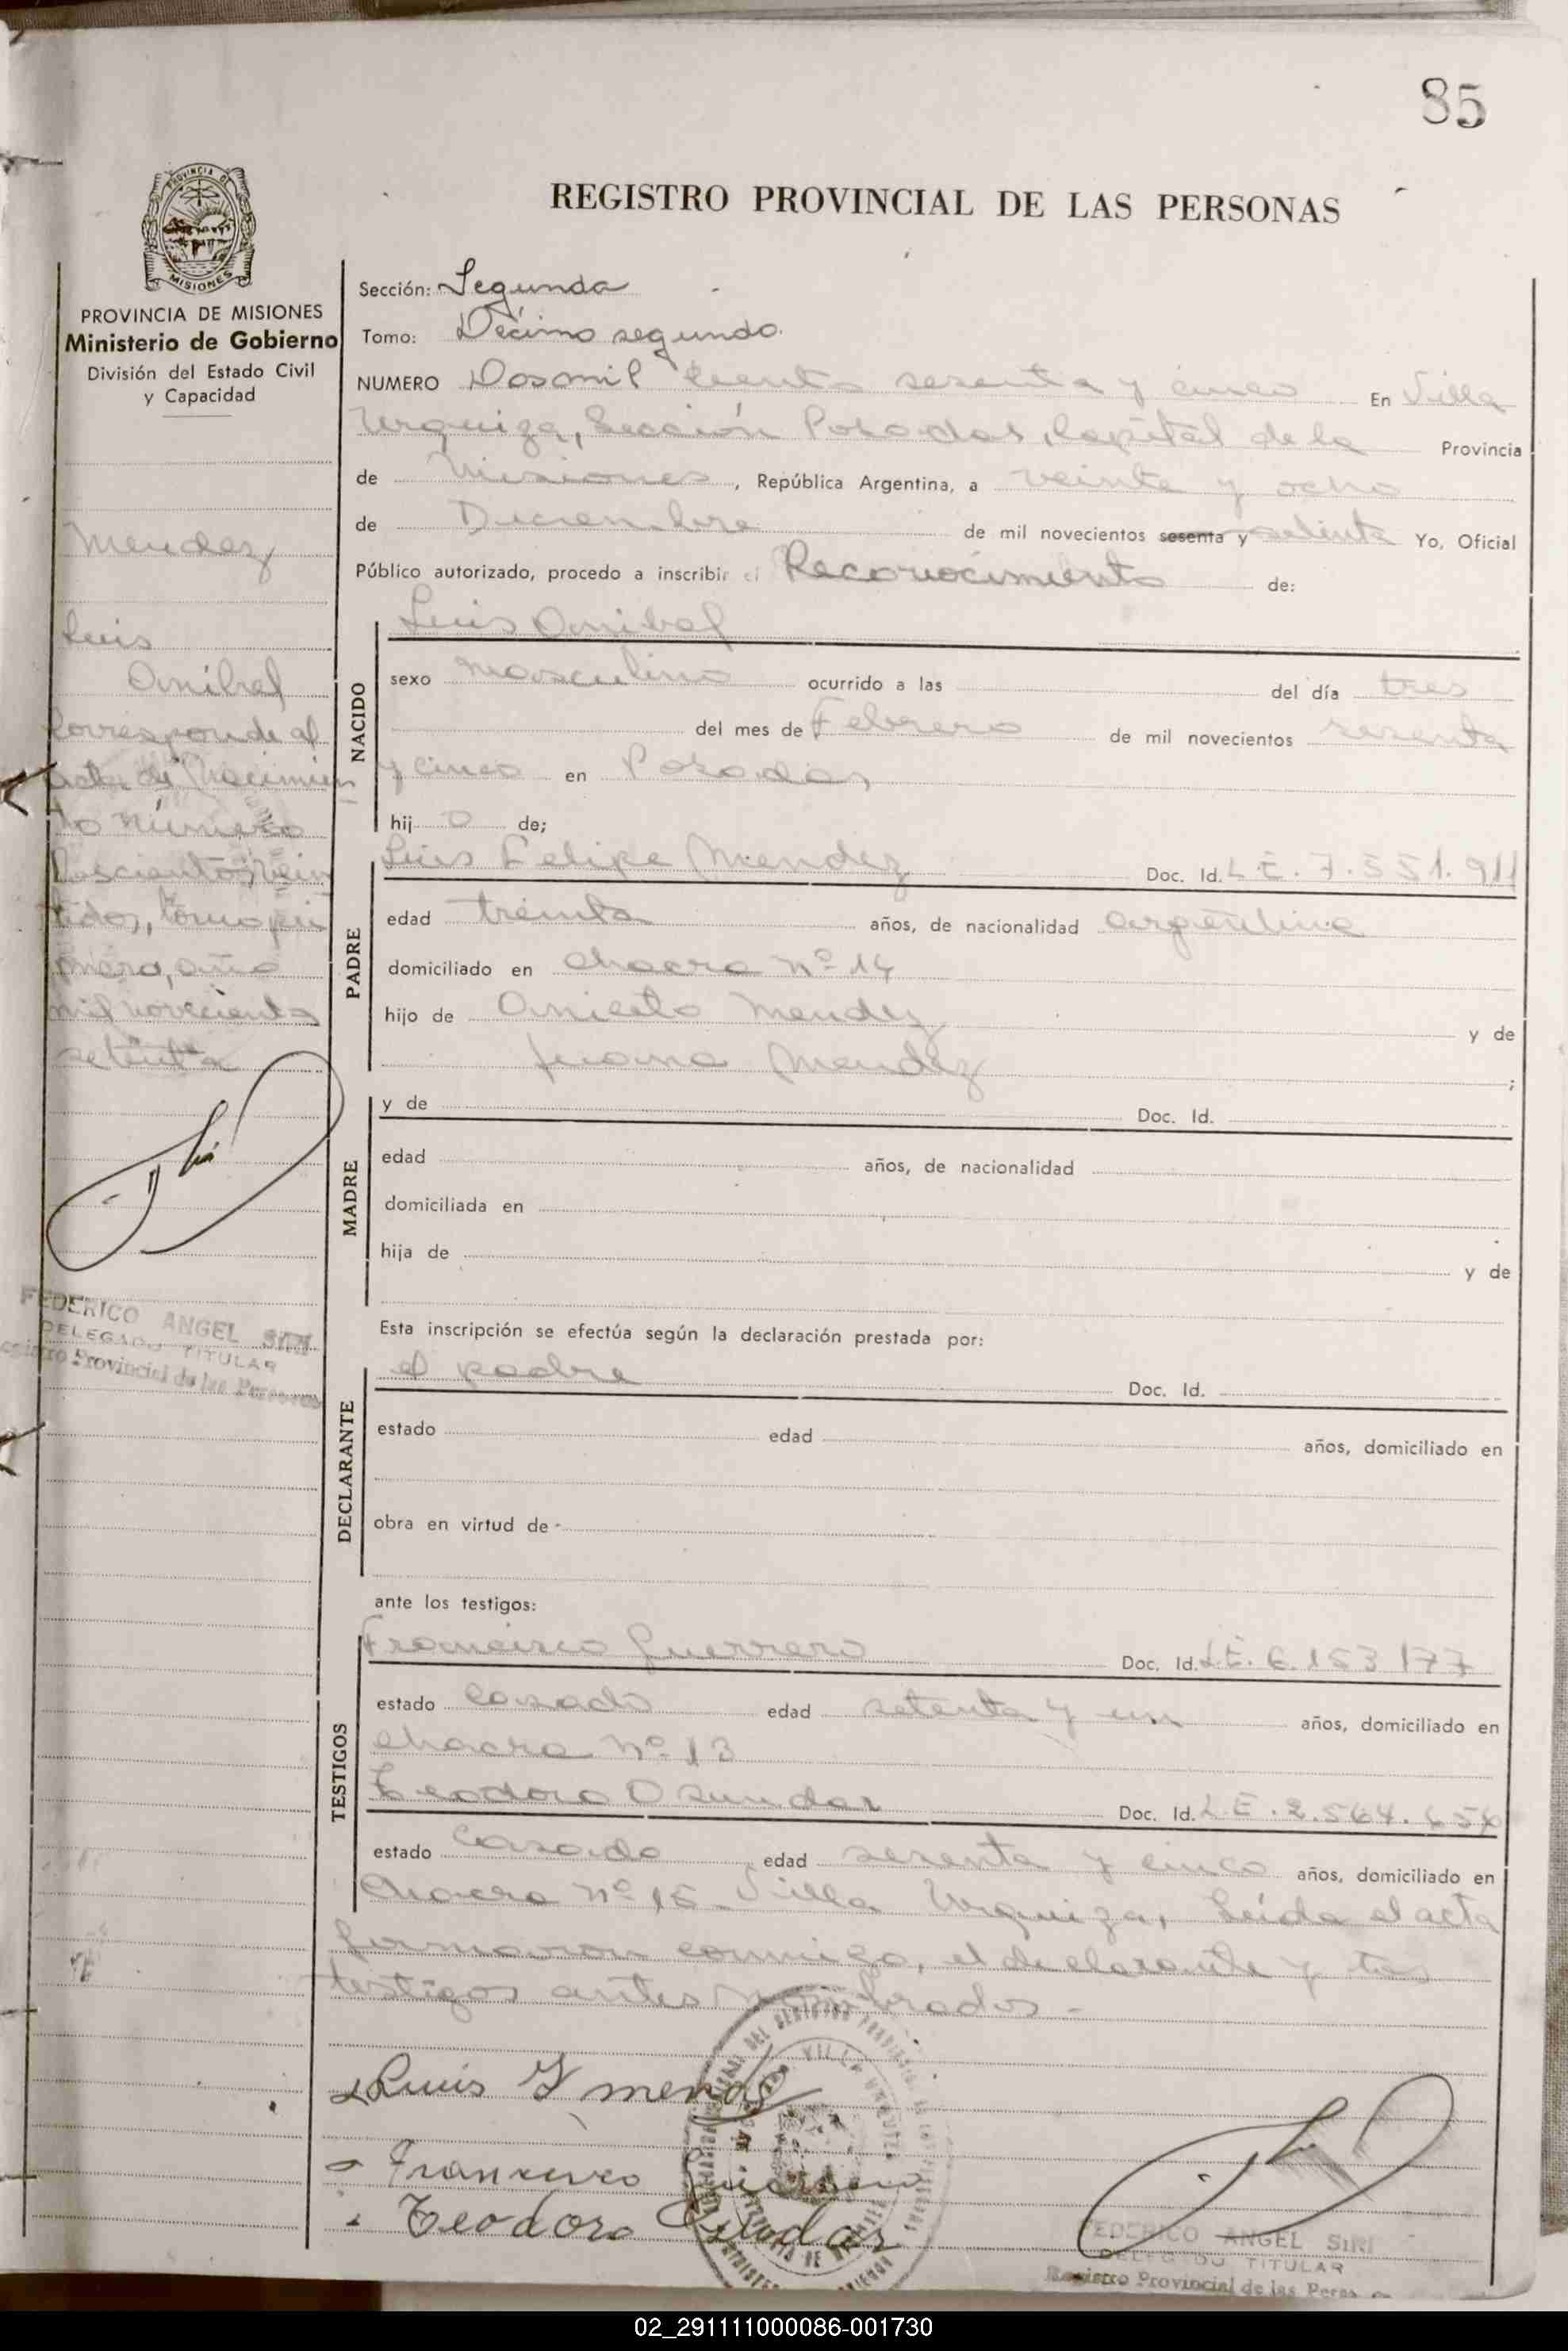 85
PROVINCIA DE
MISIONES
REGISTRO PROVINCIAL DE LAS PERSONAS
PROVINCIA DE MISIONES
Ministerio de Gobierno
División del Estado Civil
y Capacidad
Mendez
Luis
Anibal
Corresponde al
acta de Nacimien
to número
Doscientos vein
tidos, tomo pri
mero, año
mil novecientos
setenta
FEDERICO ANGEL SIRI
DELEGADO TITULAR
Registro Provincial de las Personas
Sección: Segunda
Tomo: Décimo segundo
NUMERO Dosmil ciento sesenta y cinco En Villa
Urquiza, Sección Posadas, Capital de la Provincia
de Misiones, República Argentina, a veinte y ocho
de Diciembre de mil novecientos sesenta y setenta Yo, Oficial
Público autorizado, procedo a inscribir el Reconocimiento de:
NACIDO
Luis Anibal
sexo masculino ocurrido a las del día tres
del mes de Febrero de mil novecientos sesenta
y cinco en Posadas,
hij o de;
PADRE
Luis Felipe Mendez Doc. Id. L.E. 7.551.911
edad treinta años, de nacionalidad argentina
domiciliado en chacra nº 14
hijo de Aniceto Mendez y de
Juana Mendez ;
MADRE
y de Doc. Id.
edad años, de nacionalidad
domiciliada en
hija de y de
Esta inscripción se efectúa según la declaración prestada por:
DECLARANTE
el padre Doc. Id.
estado edad años, domiciliado en
obra en virtud de
ante los testigos:
TESTIGOS
Francisco Guerrero Doc. Id. L.E. 6.153.177
estado casado edad setenta y un años, domiciliado en
chacra nº 13
Teodoro Doc. Id. L.E. 2.564.656
estado casado edad sesenta y cinco años, domiciliado en
chacra nº 15 - Villa Urquiza, Leída el acta
firmaron conmigo, el declarante y los
testigos antes nombrados -
Luis F mendez
Francisco Guerrero
Teodoro
FEDERICO ANGEL SIRI
DELEGADO TITULAR
Registro Provincial de las Personas
02_291111000086-001730